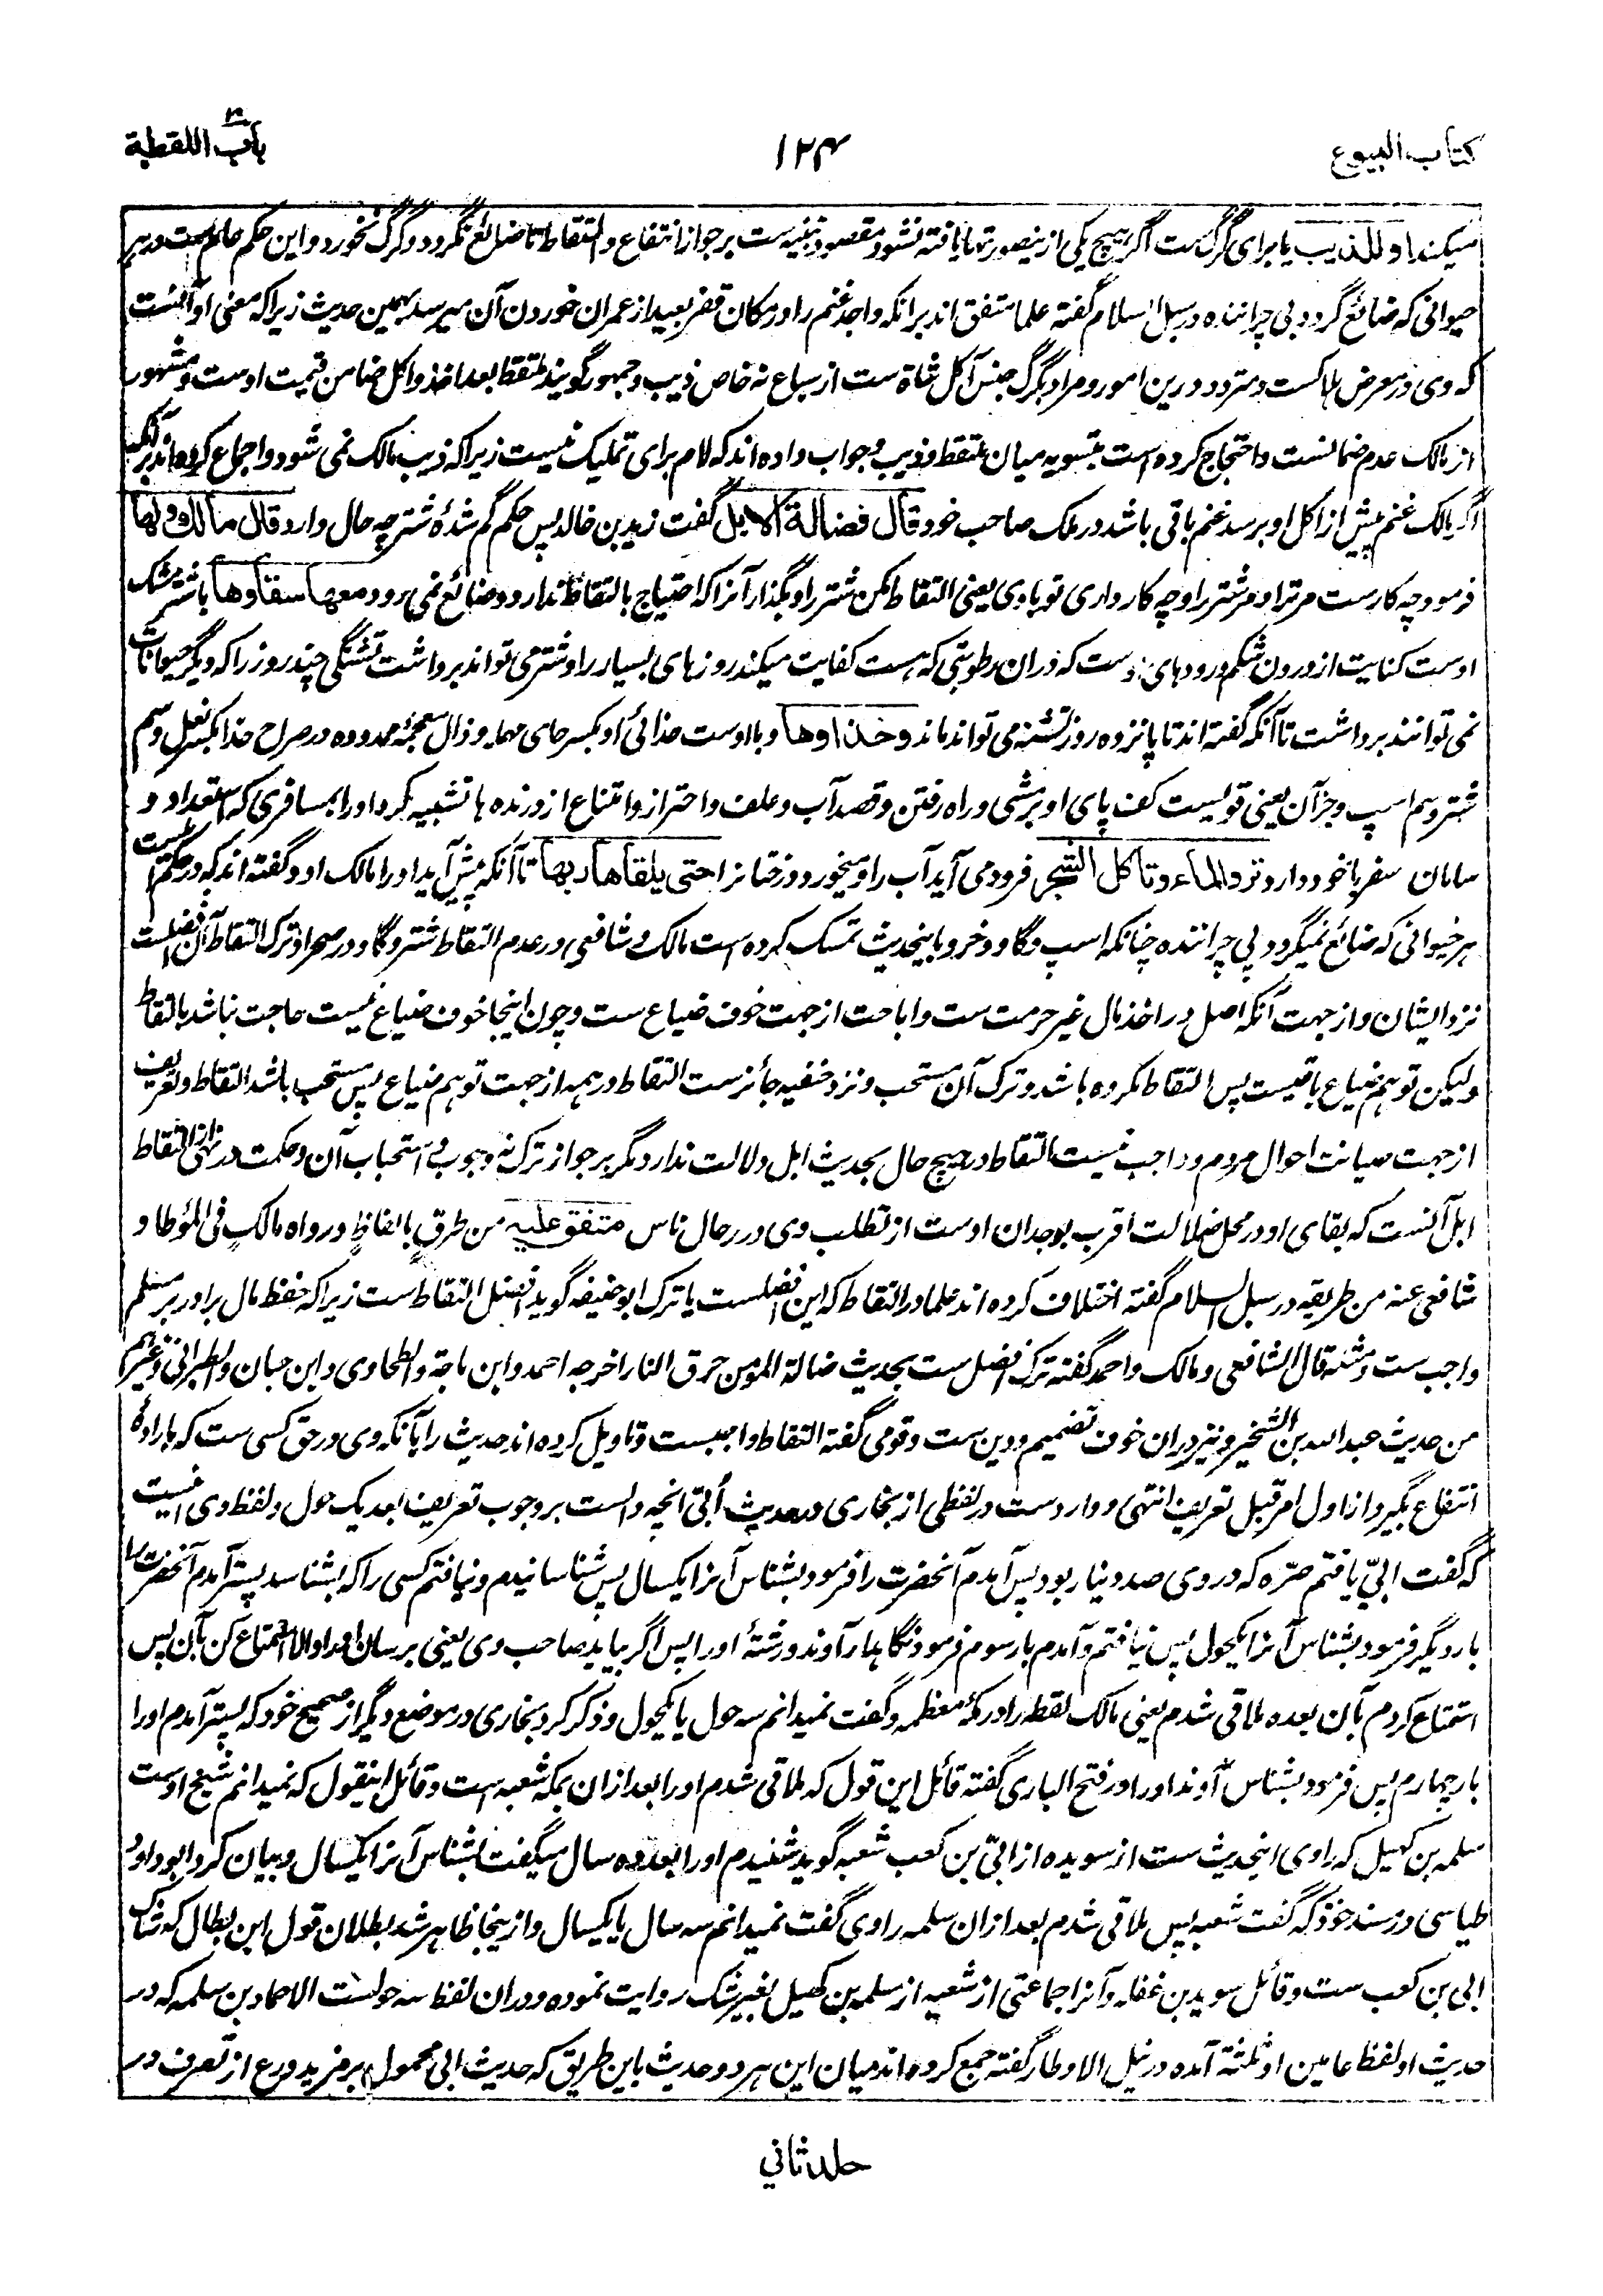 کتاب البیوع
۱۲۴
باب اللقطة
میکند او للذیب یا برای گرگ ست اگر هیچ یکی ازینصورتها یافته نشود مقصود تنبیه ست بر جواز انتفاع و التقاط تا ضائع نگردد و گرگ نخورد و این حکم عام ست در هر
حیوانی که ضائع گردد بی چراننده در سبل السلام گفته علما متفق اند برانکه واجد غنم را در مکان قفر بعید از عمران خوردن آن میرسد بهمین حدیث زیرا که معنی او آنست
که وی در معرض هلاکست و متردد درین امور و مراد بگرگ جنس آکل شاة ست از سباع نه خاص ذیب و جمهور گویند ملتقط بعد اخذ و اکل ضامن قیمت اوست و مشهور
از مالک عدم ضمانست و احتجاج کرده است بتسویه میان ملتقط و ذیب و جواب داده اند که لام برای تملیک نیست زیرا که ذیب مالک نمی شود و اجماع کرده اند برآنکه
اگر مالک غنم پیش از اکل او برسد غنم باقی باشد در ملک صاحب خود قال فضالة الابل گفت زید بن خالد پس حکم گم شدهٔ شتر چه حال دارد قال مالك ولها
فرمود چه کارست مر ترا و مر شتر را و چه کار داری تو با وی یعنی التقاط مکن شتر را و بگذار آنرا که احتیاج بالتقاط ندارد و ضائع نمی رود معها سقاؤها با شتر مشک
اوست کنایت از درون شکم و رودهای اوست که دران رطوبتی که هست کفایت میکند روزهای بسیار را و شتر می تواند برداشت تشنگی چند روز را که دیگر حیوانات
نمی توانند برداشت تا آنکه گفته اند تا پانزده روز تشنه می تواند ماند و حذاؤها و با اوست حذائی او بکسر حای مهمله و ذال معجمه ممدوده در صراح حذا بکسر نعل و سم
شتر و سم اسپ و جز آن یعنی قویست کف پای او بر مشی و راه رفتن و قصد آب و علف و احتراز و امتناع از درنده ها تشبیه کرد او را بمسافری که استعداد و
سامان سفر با خود دارد ترد الماء و تاکل الشجر فرود می آید آب را و میخورد درختانرا حتی یلقاها ربها تا آنکه پیش آید او را مالک او و گفته اند که در حکم اینست
هر حیوانی که ضائع نمیگردد بی چراننده چنانکه اسپ و گاو و خر و باینحدیث تمسک کرده است مالک و شافعی در عدم التقاط شتر و گاو در صحرا و ترک التقاط آن افضلست
نزد ایشان و از جهت آنکه اصل در اخذ مال غیر حرمت ست و اباحت از جهت خوف ضیاع ست و چون اینجا خوف ضیاع نیست حاجت نباشد بالتقاط
ولیکن توهم ضیاع باقیست پس التقاط مکروه باشد و ترک آن مستحب و نزد حنفیه جائزست التقاط در همه از جهت توهم ضیاع پس مستحب باشد التقاط و تعریف
از جهت صیانت احوال مردم و واجب نیست التقاط در هیچ حال بحدیث ابل دلالت ندارد مگر بر جواز ترک نه وجوب و استحباب آن و حکمت در نهی از التقاط
ابل آنست که بقای او در محل ضلالت اقرب بوجدان اوست از تطلب وی در رحال ناس متفق علیه من طرق بالفاظ و رواه مالک فی المؤطا و
شافعی عنه من طریقه در سبل السلام گفته اختلاف کرده اند علما در التقاط که این افضلست یا ترک ابو حنیفه گوید افضل التقاط ست زیرا که حفظ مال برادر بر مسلم
واجب ست و مثله قال الشافعی و مالک و احمد گفته ترک افضل ست بحدیث ضالة المومن حرق النار اخرجه احمد و ابن ماجة و الطحاوی و ابن حبان و الطبرانی و غیرهم
من حدیث عبد الله بن الشخیر و نیز دران خوف تضمیم و دین ست و قومی گفته التقاط واجبست و تاویل کرده اند حدیث را بآنکه وی در حق کسی ست که بارادهٔ
انتفاع بگیرد از اول امر قبل تعریف انتهی و وارد ست در لفظی از بخاری در حدیث أبی آنچه دالست بر وجوب تعریف بعد یک حول و لفظ وی اینست
که گفت ابیّ یافتم صرّه که در وی صد دینار بود پس آمدم آنحضرت را فرمود بشناس آنرا یکسال پس شناسانیدم و نیافتم کسی را که بشناسد پستر آمدم آنحضرت را
بار دیگر فرمود بشناس آنرا یکحول پس نیافتم و آمدم بار سوم فرمود نگاهدار آوند و رشتهٔ او را پس اگر بیاید صاحب وی یعنی برسان او را و الا استمتاع کن بآن پس
استمتاع کردم بآن بعده ملاقی شدم یعنی مالک لقطه را در مکهٔ معظمه و گفت نمیدانم سه حول یا یکحول و ذکر کرد بخاری در موضع دیگر از صحیح خود که پستر آمدم او را
بار چهارم پس فرمود بشناس آوند او را و در فتح الباری گفته قائل این قول که ملاقی شدم او را بعد ازان بمکه شعبه است و قائل اینقول که نمیدانم شیخ اوست
سلمه بن کهیل که راوی اینحدیث ست از سوید از ابیّ بن کعب شعبه گوید شنیدم او را بعد ده سال میگفت بشناس آنرا یکسال و بیان کرد ابو داود
طیالسی در مسند خود که گفت شعبه پس ملاقی شدم بعد ازان سلمه راوی گفت نمیدانم سه سال یا یکسال و ازینجا ظاهر شد بطلان قول ابن بطال که شاک
ابی بن کعب ست و قائل سوید بن غفله و آنرا جماعتی از شعبه از سلمه بن کهیل بغیر شک روایت نموده و دران لفظ سه حولست الا حماد بن سلمه که در
حدیث او لفظ عامین او ثلثة آمده در نیل الاوطار گفته جمع کرده اند میان این هر دو حدیث باین طریق که حدیث ابی محمول بر مزید ورع از تصرف در
جلد ثانی